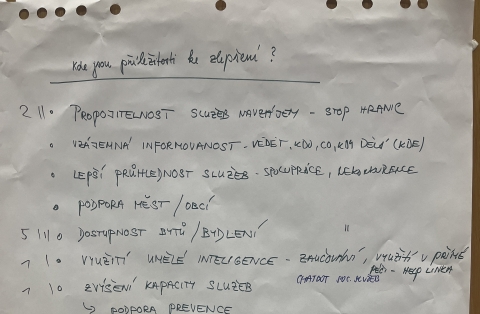 Kde jsou příležitosti ke zlepšení?
2 || • PROPOJITELNOST SLUŽEB NAVZÁJEM – STOP HRANIC
• VZÁJEMNÁ INFORMOVANOST – VĚDĚT, KDO, CO, KDY DĚLÁ (KDE)
• LEPŠÍ PRŮHLEDNOST SLUŽEB – SPOLUPRÁCE, NEKONKURENCE
• PODPORA MĚST/OBCÍ
5 || | • DOSTUPNOST BYTŮ/BYDLENÍ "
1 | • VYUŽITÍ UMĚLÉ INTELIGENCE – ZAUČOVÁNÍ, VYUŽITÍ V PŘÍMÉ
PÉČI – HELP LINKA
CHATBOT SOC. SLUŽEB
1 | • ZVÝŠENÍ KAPACITY SLUŽEB
↳ PODPORA PREVENCE